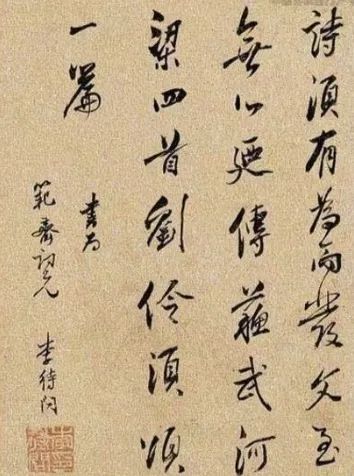 詩須有為而發文至
無心廼傳蘇武河
梁四首劉伶須頌
一篇
書為
範齋詞兄 李待問